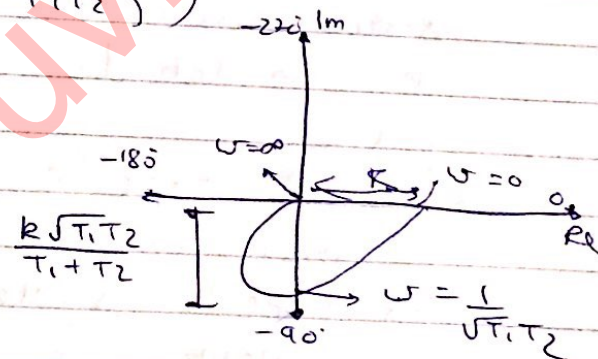 -270° Im
uv
ω=∞
-180°
K
ω=0
0°
Re
k√T₁T₂
T₁+T₂
ω = 1
√T₁T₂
-90°